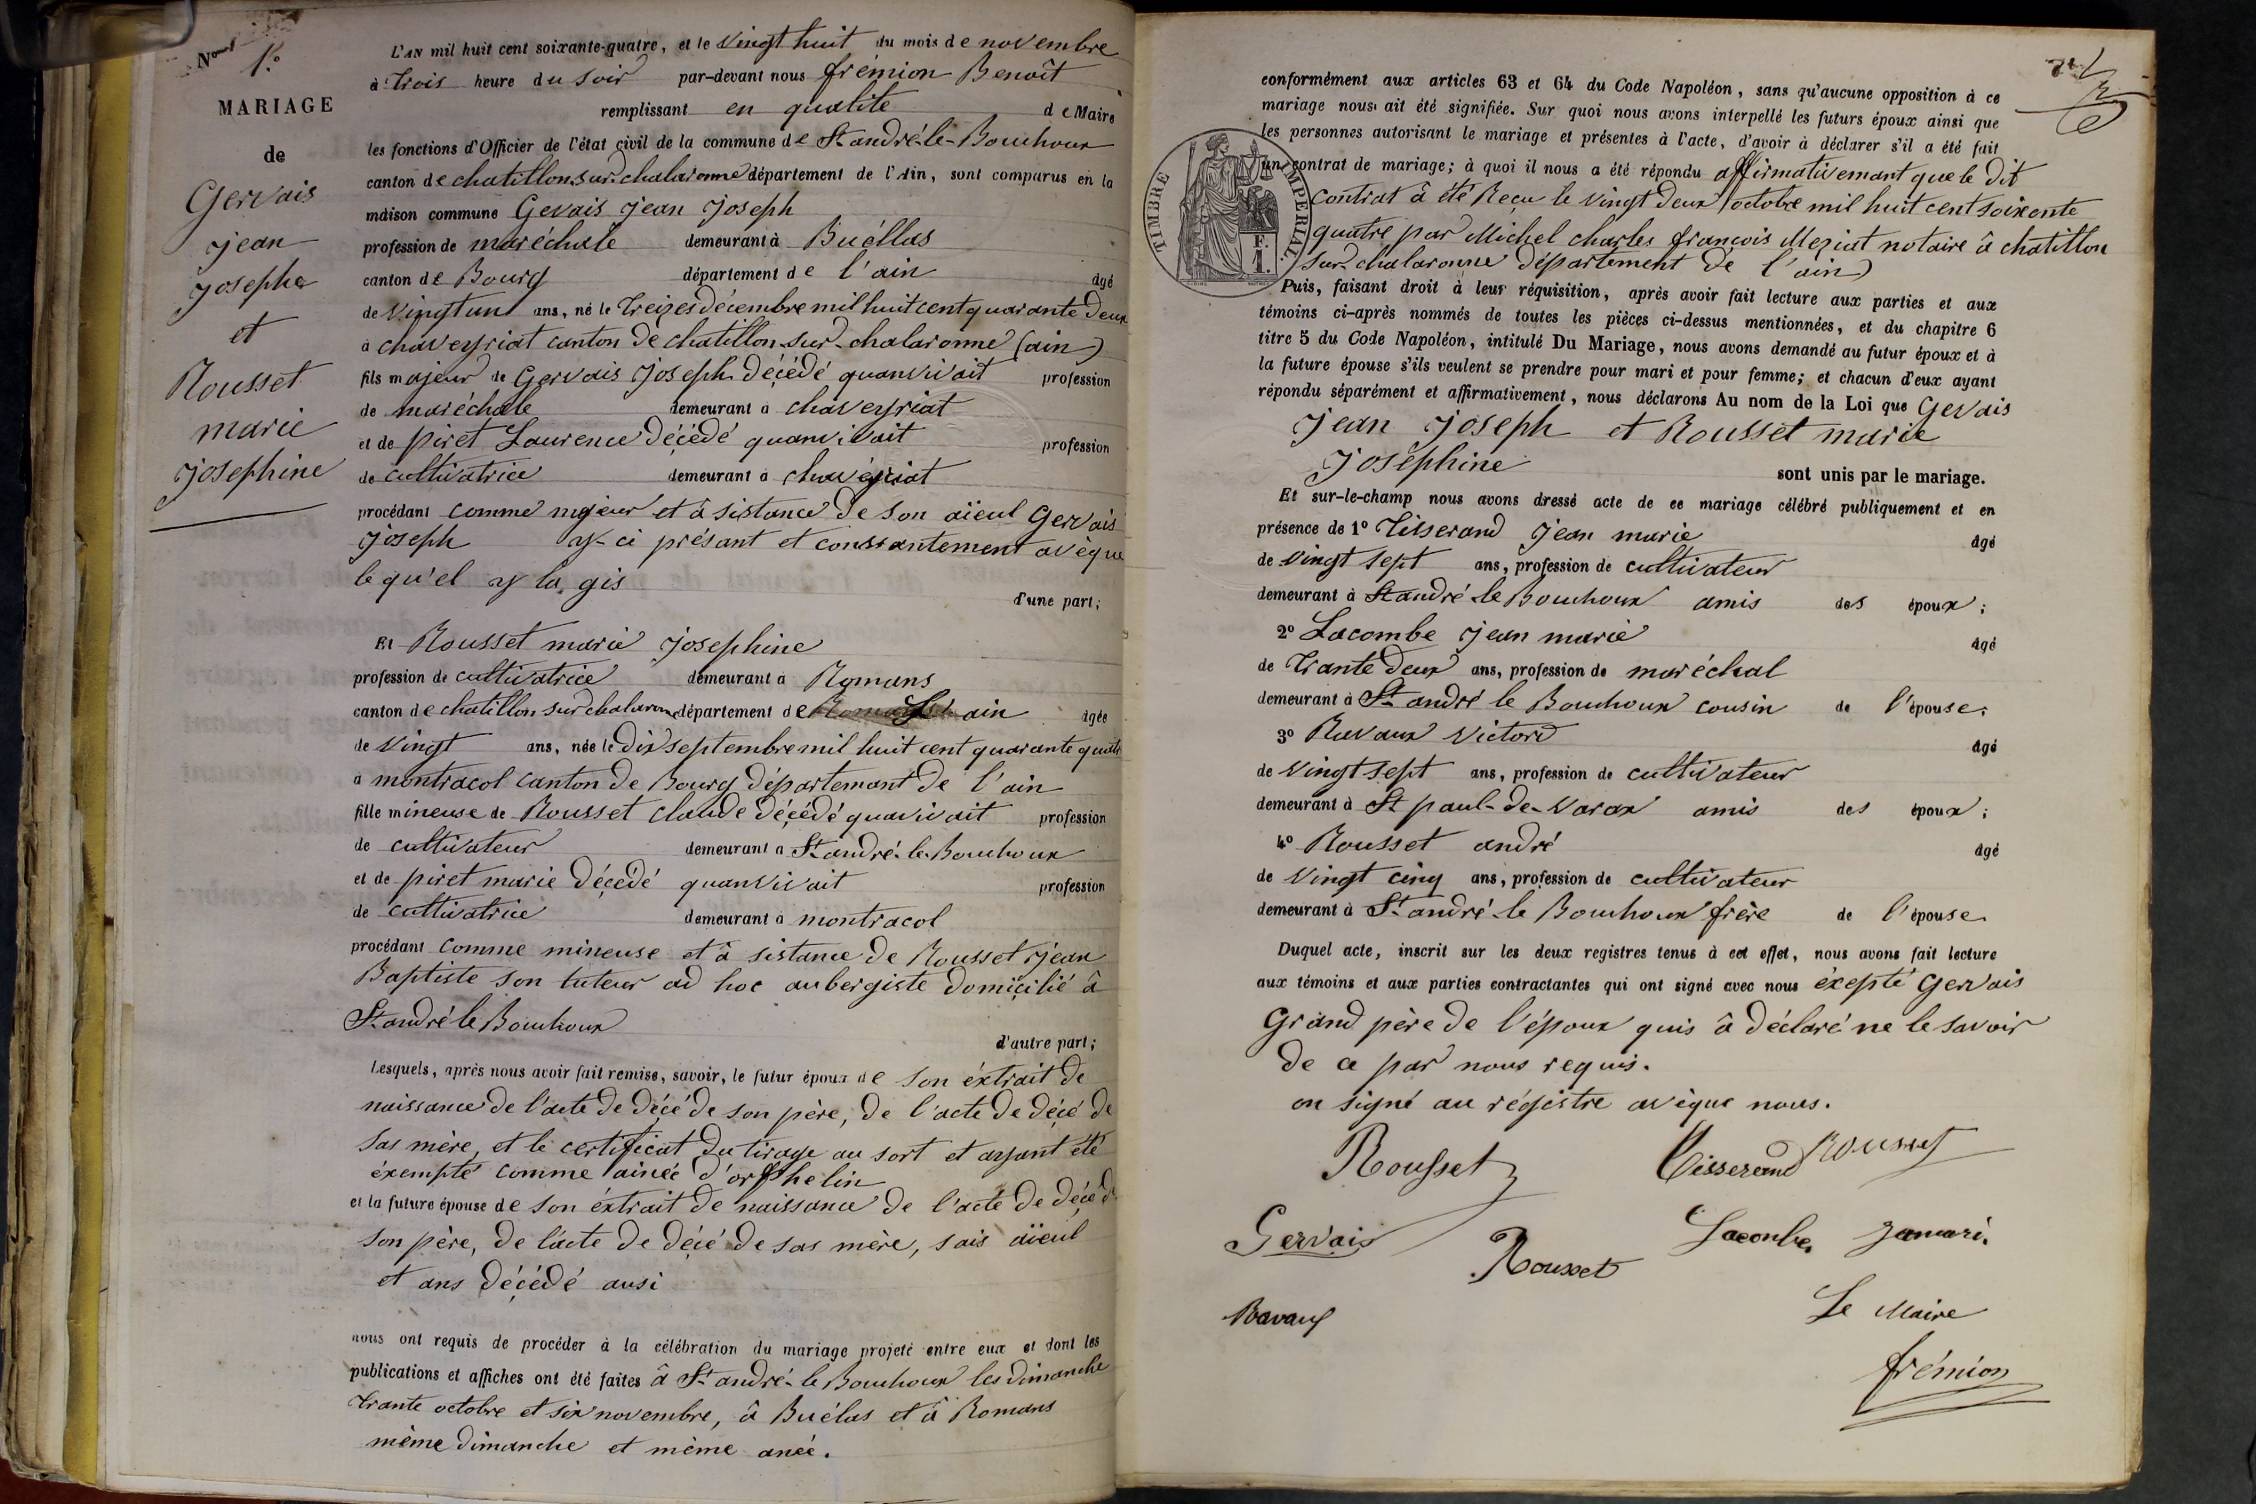 Nos 1.°
MARIAGE
de
Gervais
jean
josephe
et
Rousset
marie
josephine
L'AN mil huit cent soixante-quatre, et le vingt huit du mois de novembre
à trois heure du soir par-devant nous frémion Benoît
remplissant en qualité de Maire
les fonctions d'Officier de l'état civil de la commune de St andré-le-Bouchoux
canton de chatillon-sur-chalaronne département de l'Ain, sont comparus en la
maison commune Gevais jean joseph
profession de maréchale demeurant à Buéllas
canton de Bourg département de l'ain âgé
de vingt un ans, né le treizes décembre mil huit cent quarante deux
à chaveyriat canton de chatillon-sur-chalaronne (ain)
fils majeur de Gervais joseph décédé quanvivait profession
de maréchale demeurant à chaveyriat
et de piret Laurence décédé quanvivait profession
de cultivatrice demeurant à chavéyriat
procédant comme majeur et à sistance de son aïeul Gervais
joseph ay-ci présant et conssantement avèque
le qu'el y la gis
d'une part;
Et Rousset marie josephine
profession de cultivatrice demeurant à Romans
canton de chatillon sur chalaronne département de L'ain âgée
de vingt ans, née le dix septembre mil huit cent quarante quatre
à montracol canton de Bourg départemant de l'ain
fille mineuse de Rousset claude décédé quavivait profession
de cultivateur demeurant à St andré-le-Bouchoux
et de piret marie décédé quanvivait profession
de cultivatrice demeurant à montracol
procédant comme mineuse et à sistance de Rousset jean
Baptiste son tuteur ad hoc aubergiste domicilié à
St andré le Bouchoux
d'autre part;
Lesquels, après nous avoir fait remise, savoir, le futur époux de son éxtrait de
naissance de l'acte de décé de son père, de l'acte de décé de
sas mère, et le certificat du tirage au sort et ayant été
éxempté comme ainée d'orphelin
et la future épouse de son éxtrait de naissance de l'acte de décé de
son père, de l'acte de décé de sas mère, sais aïeul
et ans décédé ausi
nous ont requis de procéder à la célébration du mariage projeté entre eux et dont les
publications et affiches ont été faites à St andré-le Bouchoux les dimanche
trante octobre et six novembre, à Buélas et à Romans
même dimanche et même anée.
conformément aux articles 63 et 64 du Code Napoléon, sans qu'aucune opposition à ce
mariage nous ait été signifiée. Sur quoi nous avons interpellé les futurs époux ainsi que
les personnes autorisant le mariage et présentes à l'acte, d'avoir à déclarer s'il a été fait
un contrat de mariage; à quoi il nous a été répondu affirmativemant que le dit
contrat à été Reçu le vingt deux octobre mil huit cent soixente
quatre par Michel charles françois Meziat notaire à chatillon
sur-chalaronne département de l'ain)
TIMBRE IMPERIAL.
F.
1.
Puis, faisant droit à leur réquisition, après avoir fait lecture aux parties et aux
témoins ci-après nommés de toutes les pièces ci-dessus mentionnées, et du chapitre 6
titre 5 du Code Napoléon, intitulé Du Mariage, nous avons demandé au futur époux et à
la future épouse s'ils veulent se prendre pour mari et pour femme; et chacun d'eux ayant
répondu séparément et affirmativement, nous déclarons Au nom de la Loi que Gervais
jean joseph et Rousset marie
joséphine sont unis par le mariage.
Et sur-le-champ nous avons dressé acte de ce mariage célébré publiquement et en
présence de 1° Tisserand jean marie âgé
de vingt sept ans, profession de cultivateur
demeurant à St andré le Bouchoux amis des époux;
2° Lacombe jean marie âgé
de trante deux ans, profession de maréchal
demeurant à St andré le Bouchoux cousin de l'épouse;
3° Ravaux victord âgé
de vingt sept ans, profession de cultivateur
demeurant à St paul-de-varax amis des époux;
4° Rousset andré âgé
de vingt cinq ans, profession de cultivateur
demeurant à St andré-le Bouchoux frère de l'épouse
Duquel acte, inscrit sur les deux registres tenus à cet effet, nous avons fait lecture
aux témoins et aux parties contractantes qui ont signé avec nous éxepté Gervais
Grand père de l'époux quis à déclaré ne le savoir
de ce par nous requis.
on signé au régistre avèque nous.
Rousset Tisserand Rousset
Gervais Rousset Lacombe jamari.
Ravaux Le Maire
frémion